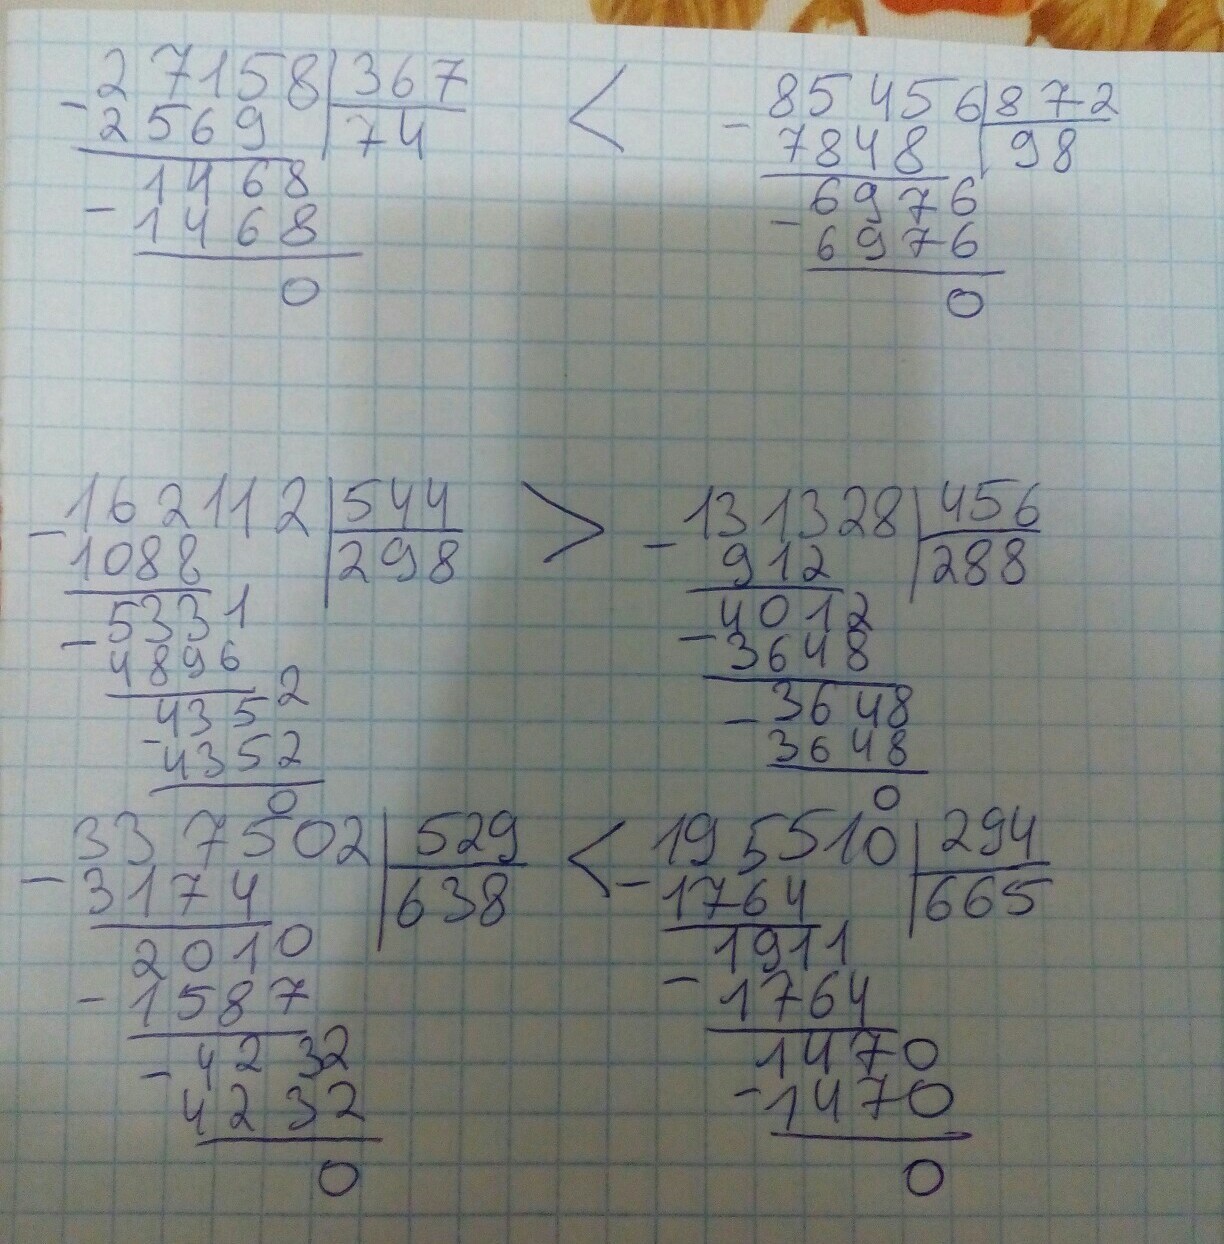 27158 | 367 < 85456 | 872
- 2569 | 74 - 7848 | 98
1468 6976
- 1468 - 6976
0 0
162112 | 544 > 131328 | 456
- 1088 | 298 - 912 | 288
5331 4012
- 4896 - 3648
4352 3648
- 4352 - 3648
0 0
337502 | 529 < 195510 | 294
- 3174 | 638 - 1764 | 665
2010 1911
- 1587 - 1764
4232 1470
- 4232 - 1470
0 0